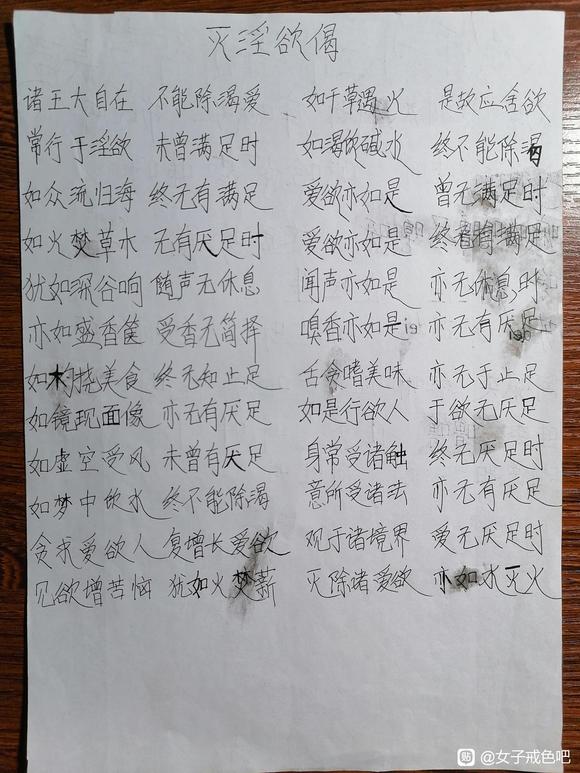 灭淫欲偈
诸王大自在 不能除渴爱 如干草遇火 是故应舍欲
常行于淫欲 未曾满足时 如渴饮碱水 终不能除渴
如众流归海 终无有满足 爱欲亦如是 曾无满足时
如火焚草木 无有厌足时 爱欲亦如是 终者满足
犹如深谷响 随声无休息 闻声亦如是 亦无休息时
亦如盛香箧 受香无简择 嗅香亦如是 亦无有厌足
如挠美食 终无知止足 舌贪嗜美味 亦无于止足
如镜现面像 亦无有厌足 如是行欲人 于欲无厌足
如虚空受风 未曾有厌足 身常受诸触 终无厌足时
如梦中饮水 终不能除渴 意所受诸法 亦无有厌足
贪求爱欲人 复增长爱欲 观于诸境界 爱无厌足时
见欲增苦恼 犹如火焚薪 灭除诸爱欲 亦如水灭火
贴 @女子戒色吧